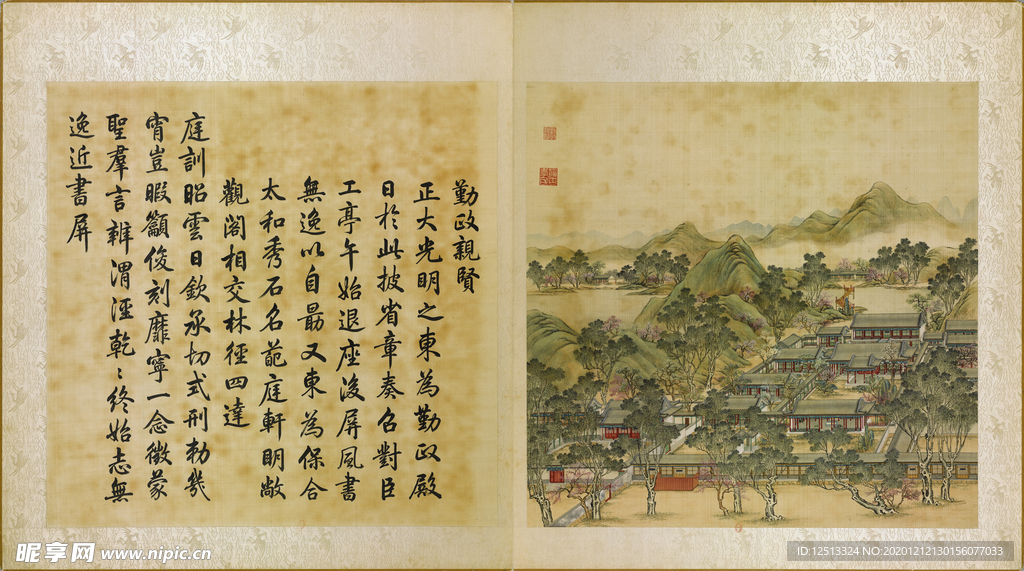 勤政親賢
正大光明之東為勤政殿
日於此披省章奏召對臣
工亭午始退座後屏風書
無逸以自勗又東為保合
太和秀石名葩庭軒明敞
觀閣相交林徑四達
庭訓昭雲日欽承切式刑勑幾
宵豈暇籲俊刻靡寧一念徵蒙
聖羣言辨渭涇乾〻終始志無
逸近書屏
昵享网 www.nipic.cn
ID:12513324 NO:20201212130156077033